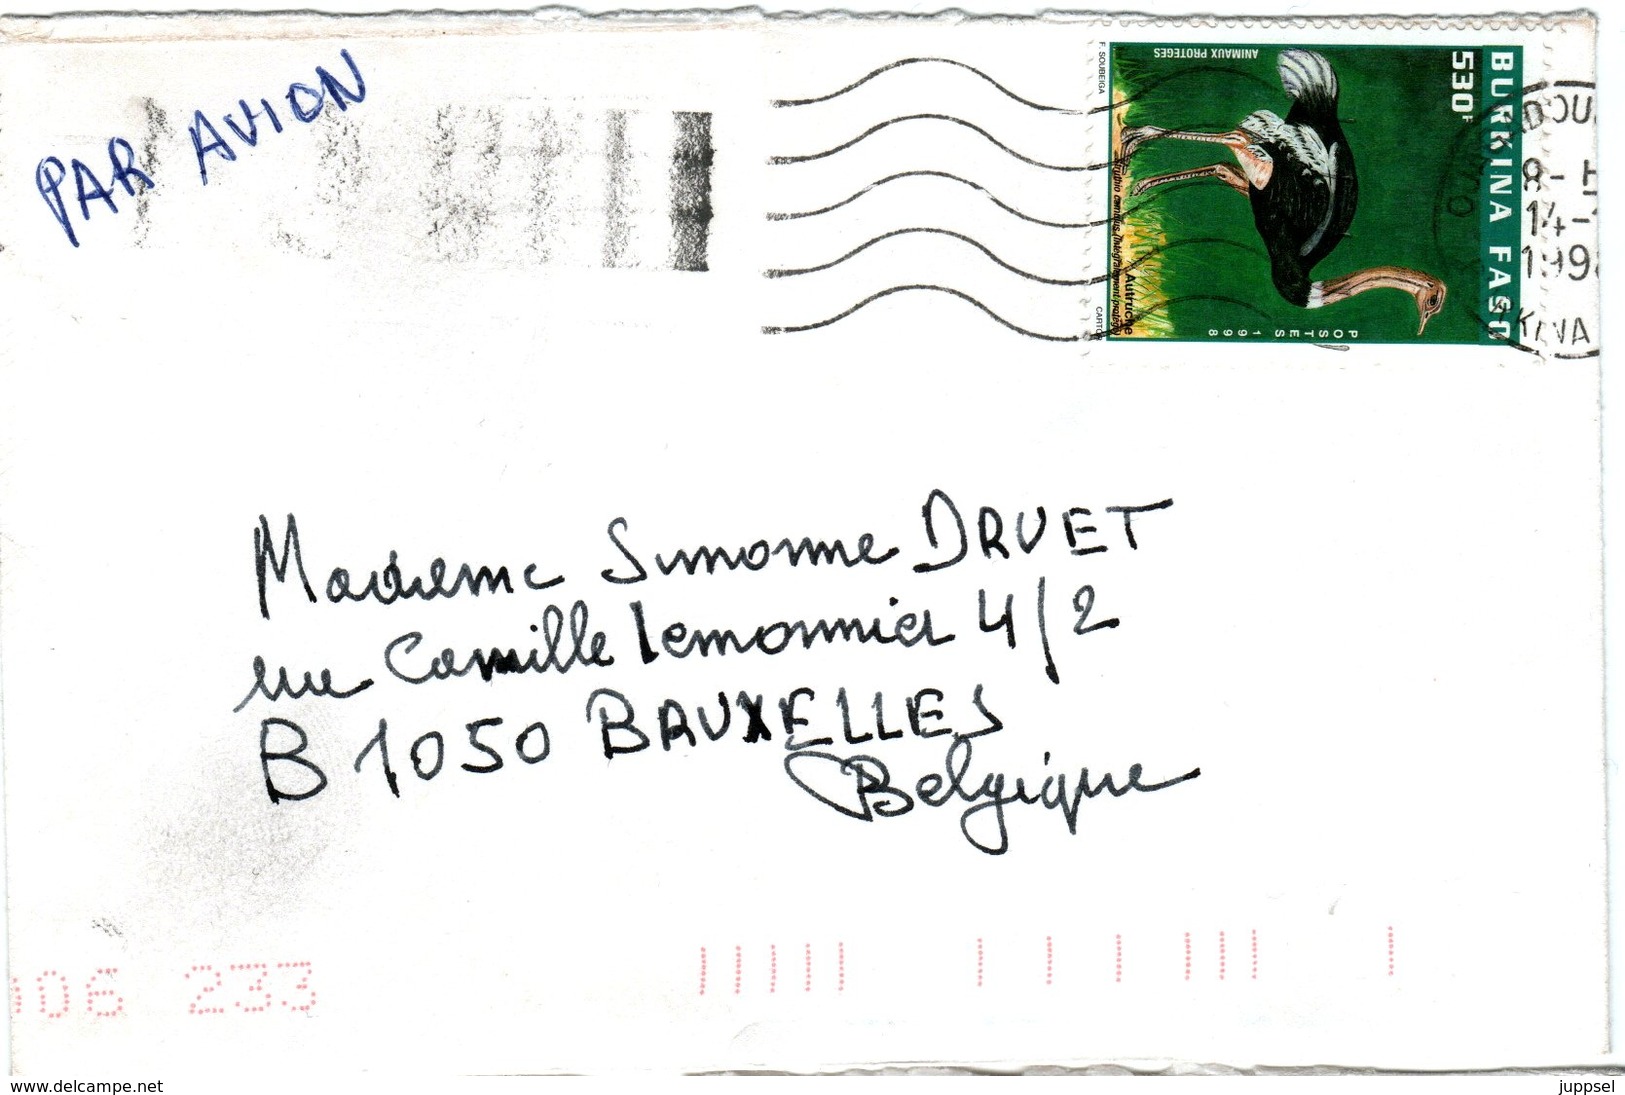 PAR AVION
BURKINA FASO
530F
ANIMAUX PROTEGES
POSTES 1998
Autruche
F. SOUBEIGA
CARTO
14-
199
Madame Simonne DRUET
rue Camille Lemonnier 4/2
B 1050 BRUXELLES
Belgique
06 233
www.delcampe.net
juppsel